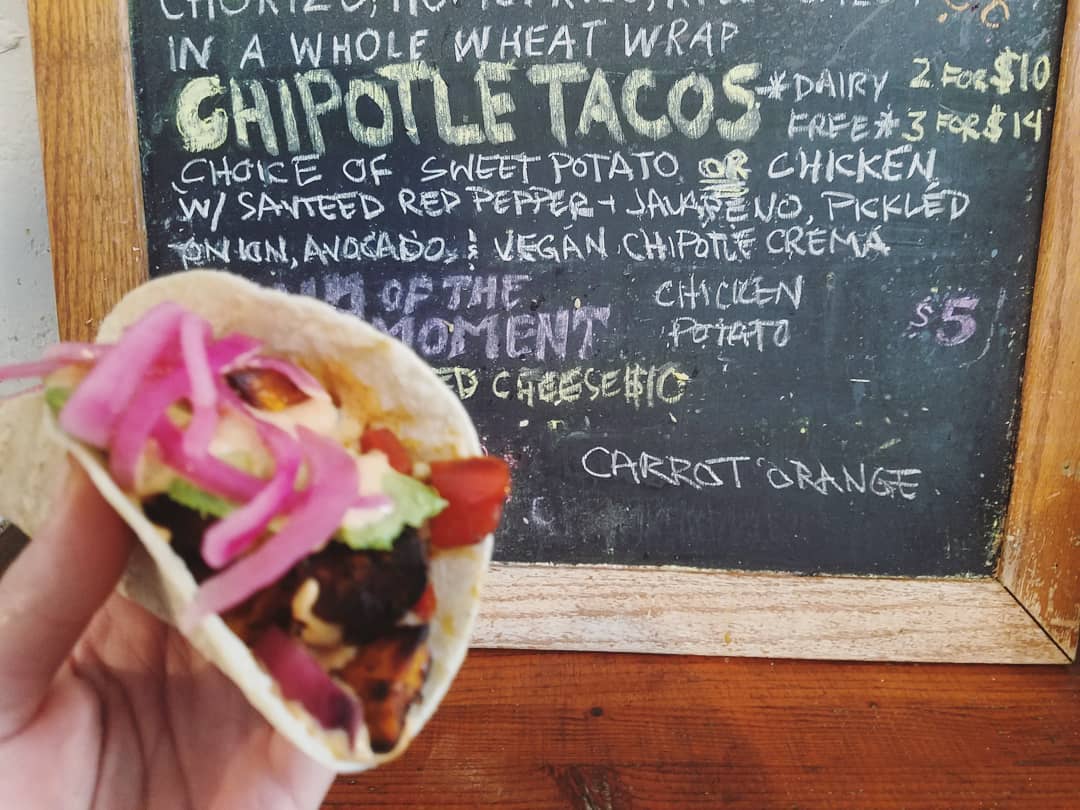 CHORIZO,
IN A WHOLE WHEAT WRAP
CHIPOTLE TACOS *DAIRY 2 FOR $10
FREE* 3 FOR $14
CHOICE OF SWEET POTATO OR CHICKEN
W/ SAUTEED RED PEPPER + JALAPENO, PICKLED
ONION, AVOCADO, & VEGAN CHIPOTLE CREMA
OF THE CHICKEN
MOMENT POTATO $5
ED CHEESE $10
CARROT ORANGE